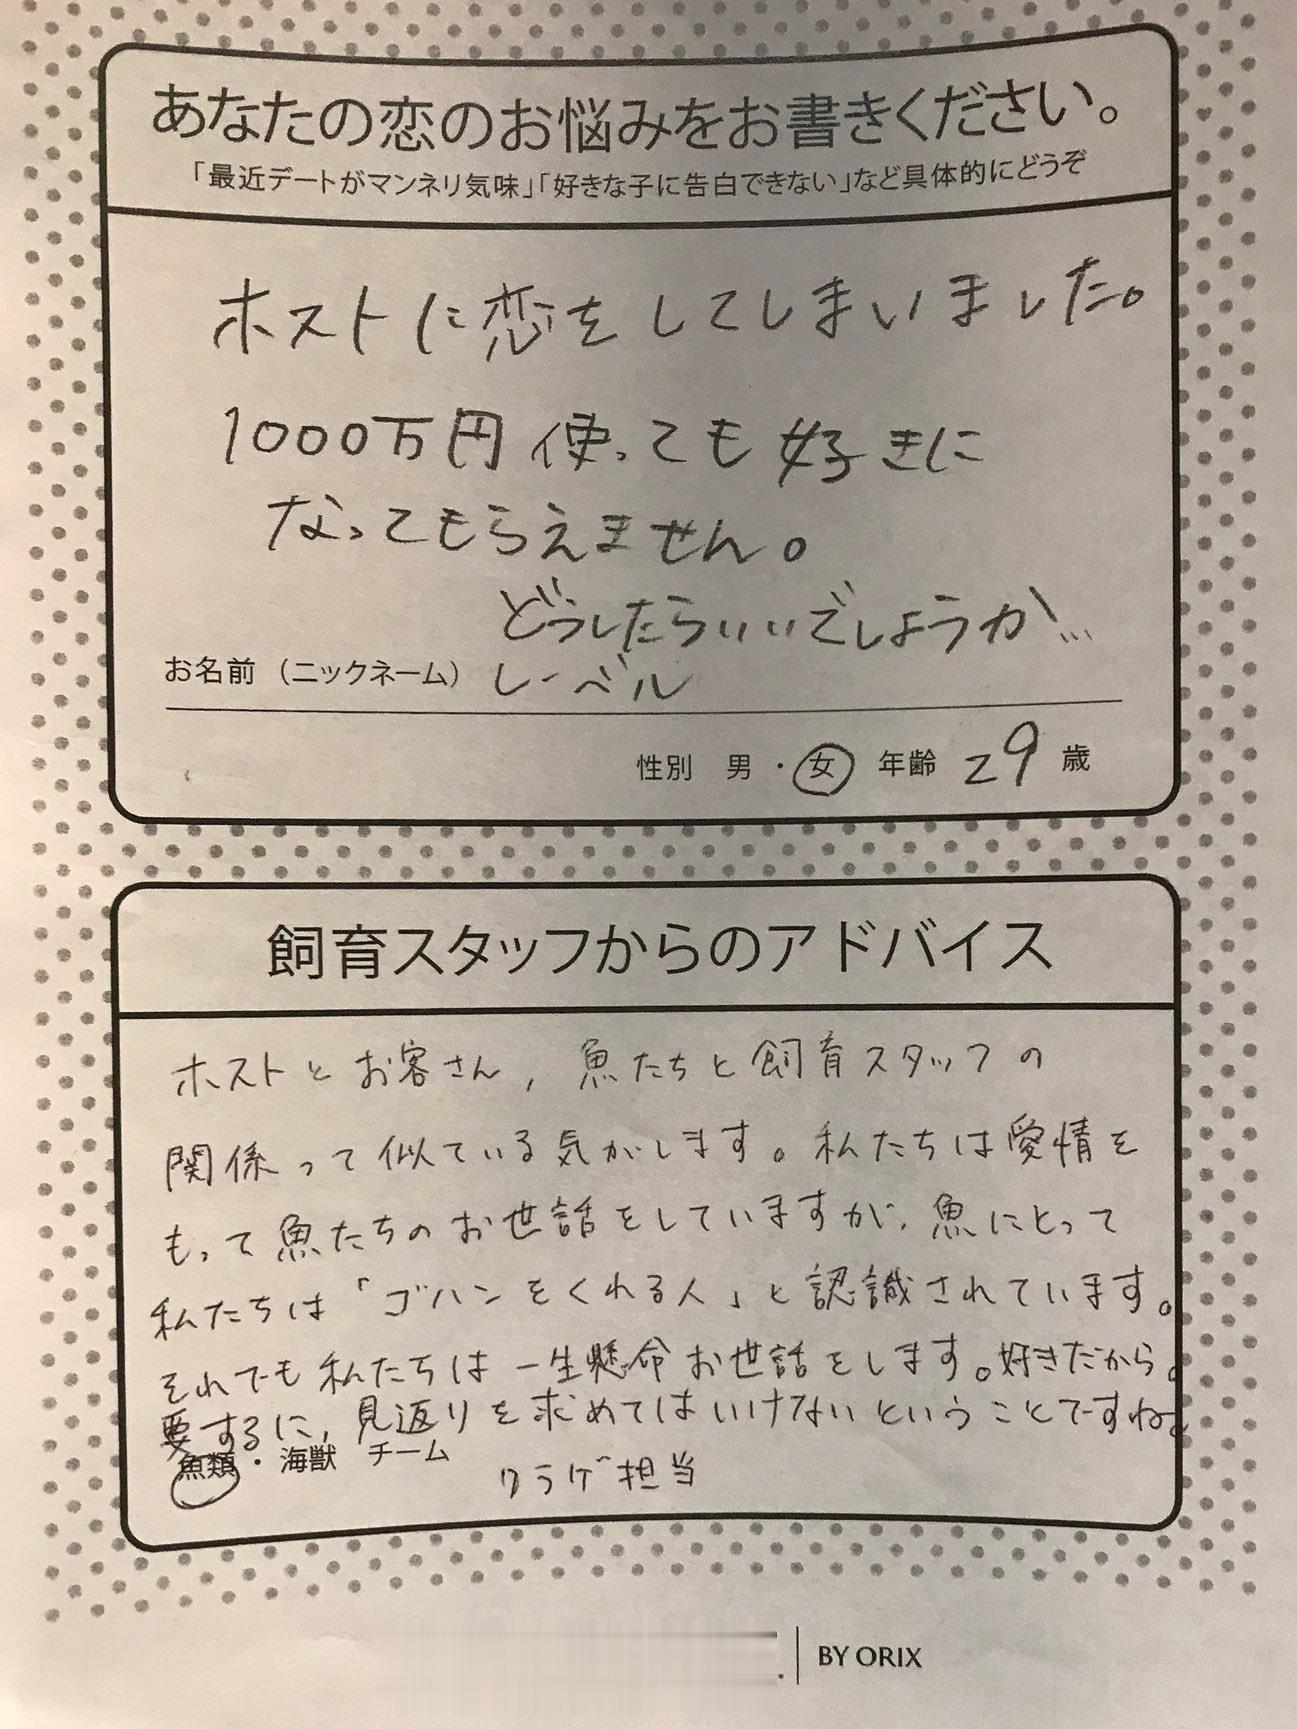 あなたの恋のお悩みをお書きください。
「最近デートがマンネリ気味」「好きな子に告白できない」など具体的にどうぞ
ホストに恋をしてしまいました。
1000万円使っても好きに
なってもらえません。
どうしたらいいでしょうか…
お名前（ニックネーム） レーベル
性別 男・女 年齢 29 歳
飼育スタッフからのアドバイス
ホストとお客さん，魚たちと飼育スタッフの
関係って似ている気がします。私たちは愛情を
もって魚たちのお世話をしていますが，魚にとって
私たちは「ゴハンをくれる人」と認識されています。
それでも私たちは一生懸命お世話をします。好きだから。
要するに，見返りを求めてはいけないということですね。
魚類・海獣 チーム クラゲ担当
BY ORIX